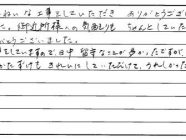 ねいな工事をしていただき ありがとうござい
た。御近所様への気配りも ちゃんとしていた
がとうございました。
をしていますので日中 留守なことが多かったですが、
かたずけも きれいにしていただけて、うれしかった